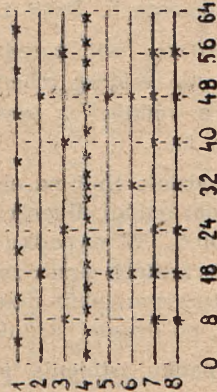 1
2
3
4
5
6
7
8
0 8 16 24 32 40 48 56 64